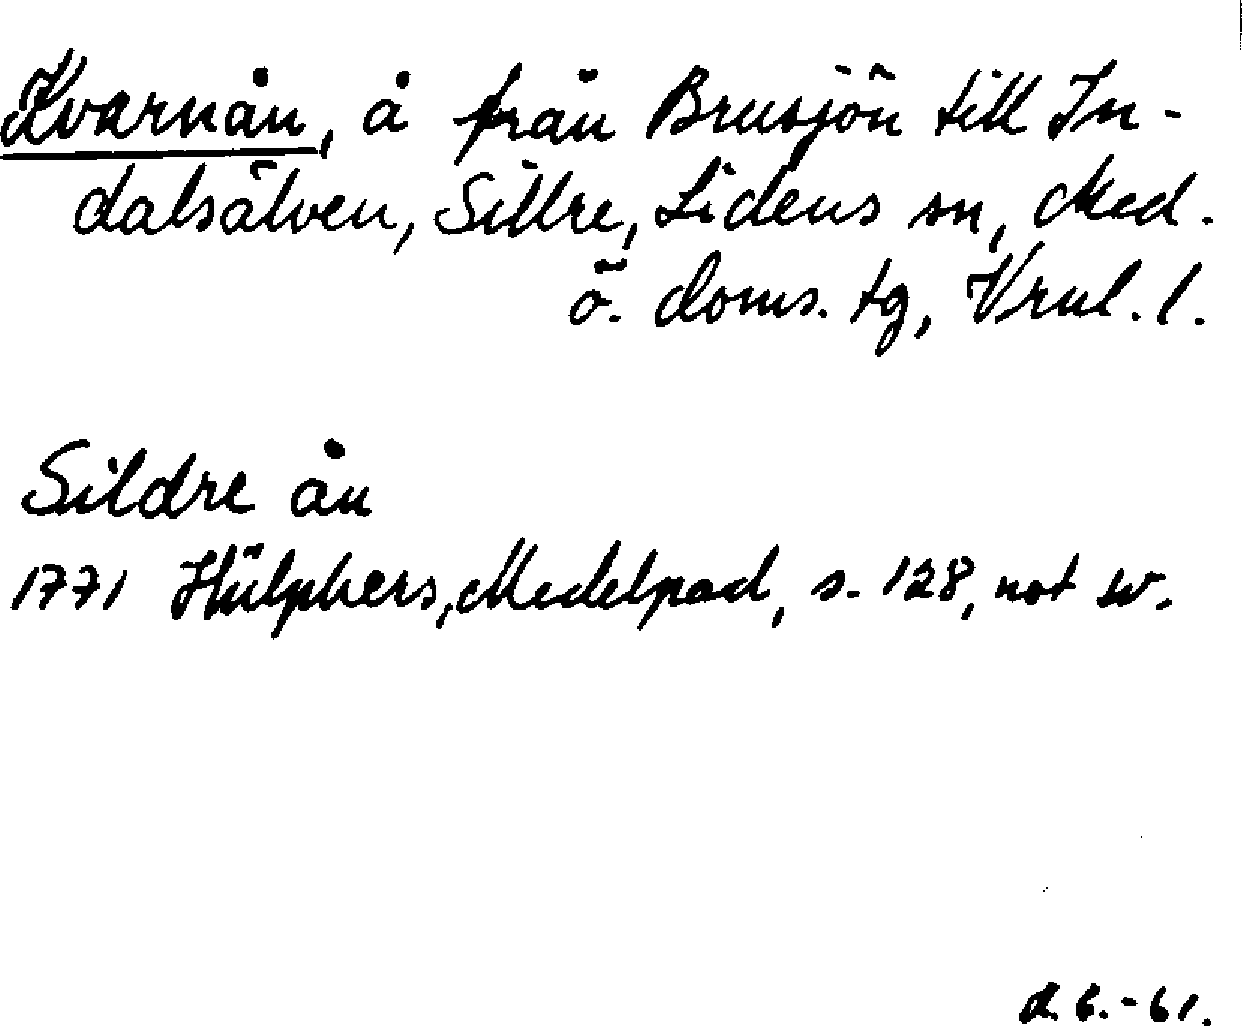 Kvarnån, å från Brusjön till In-
dalsälven, Sillre, Lidens sn, Med.
ö. doms. tg, Vrnl. l.
Sildre ån
1771 Hülphers, Medelpad, s. 128, not w.
6.-61.